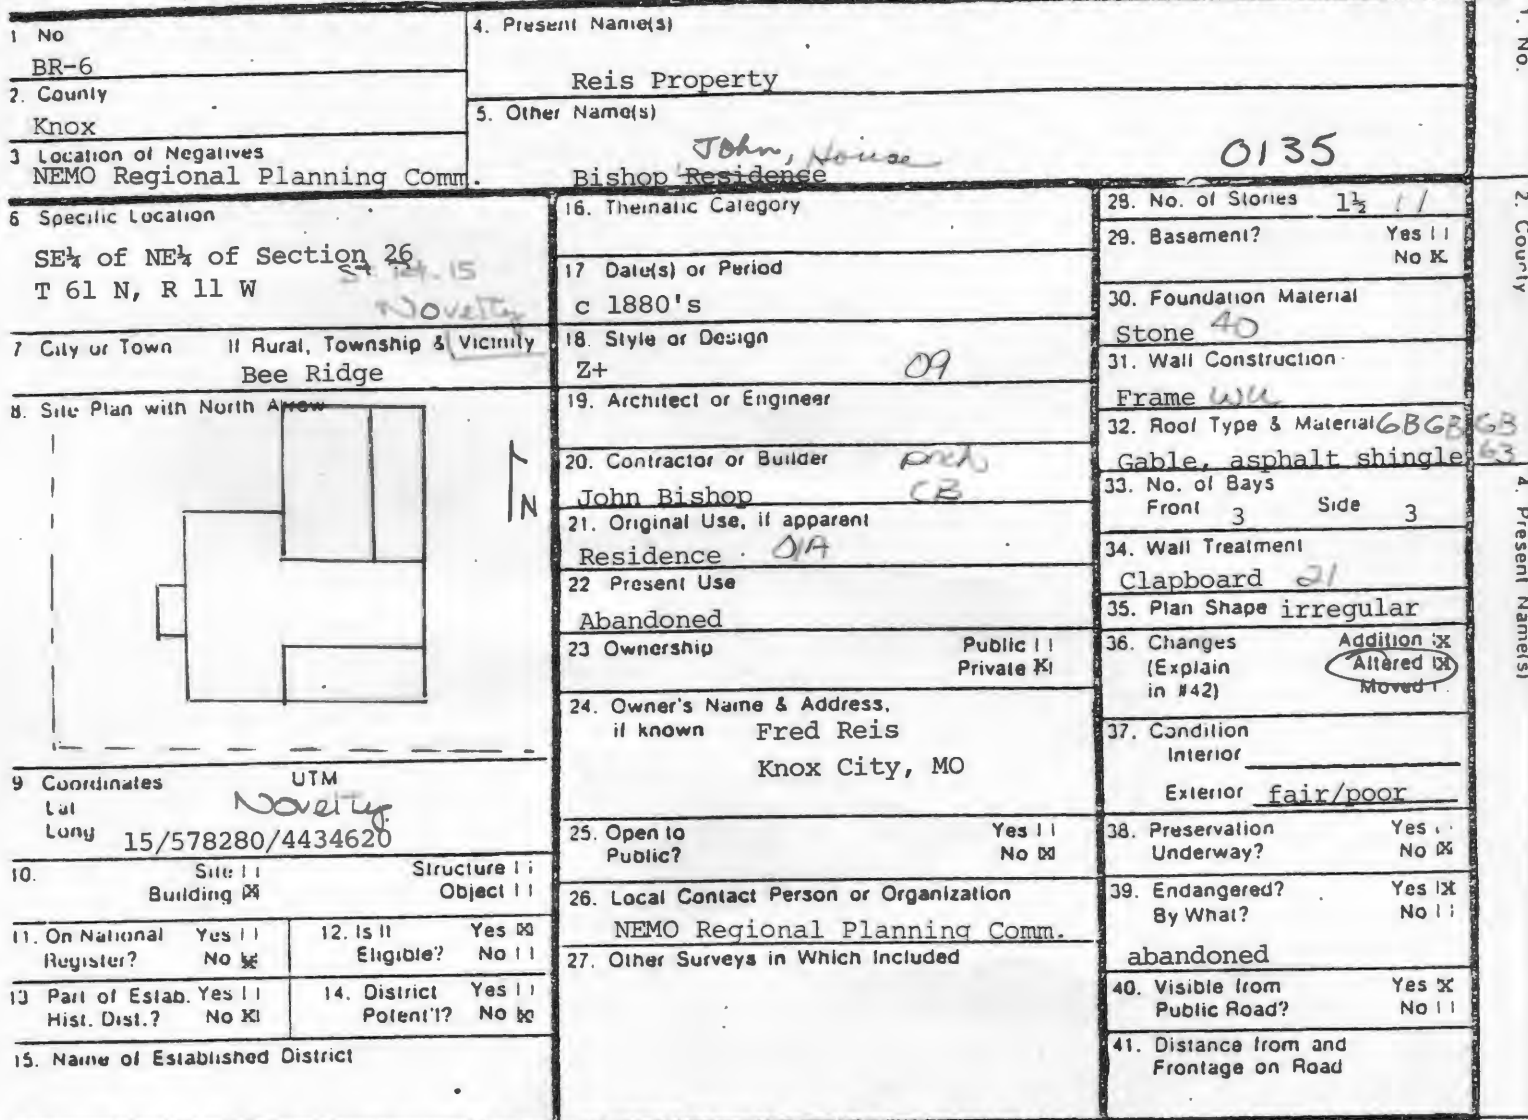 1 No
BR-6
2. County
Knox
3 Location of Negatives
NEMO Regional Planning Comm.
4. Present Name(s)
Reis Property
5. Other Name(s)
John, House
Bishop Residence
0135
6 Specific Location
SE¼ of NE¼ of Section 26
T 61 N, R 11 W
Novelty
7 City or Town If Rural, Township & Vicinity
Bee Ridge
8. Site Plan with North Arrow
N
9 Coordinates UTM
Lat
Novelty
Long 15/578280/4434620
10. Site | | Structure | |
Building [X] Object | |
11. On National Yes | |
Register? No [X]
12. Is It Yes [X]
Eligible? No | |
13 Part of Estab. Yes | |
Hist. Dist.? No [X]
14. District Yes | |
Potent'l? No [X]
15. Name of Established District
16. Thematic Category
17 Date(s) or Period
c 1880's
18. Style or Design
Z+ 09
19. Architect or Engineer
20. Contractor or Builder
John Bishop CB
21. Original Use, if apparent
Residence 01A
22 Present Use
Abandoned
23 Ownership Public | |
Private [X]
24. Owner's Name & Address,
if known Fred Reis
Knox City, MO
25. Open to Yes | |
Public? No [X]
26. Local Contact Person or Organization
NEMO Regional Planning Comm.
27. Other Surveys in Which Included
28. No. of Stories 1½
29. Basement? Yes | |
No [X]
30. Foundation Material
Stone 40
31. Wall Construction
Frame WU
32. Roof Type & Material GBGB GB
Gable, asphalt shingle 63
33. No. of Bays
Front 3 Side 3
34. Wall Treatment
Clapboard 21
35. Plan Shape irregular
36. Changes Addition [X]
(Explain Altered [X]
in #42) Moved | |
37. Condition
Interior
Exterior fair/poor
38. Preservation Yes | |
Underway? No [X]
39. Endangered? Yes [X]
By What? No | |
abandoned
40. Visible from Yes [X]
Public Road? No | |
41. Distance from and
Frontage on Road
1. No.
2. County
4. Present Name(s)